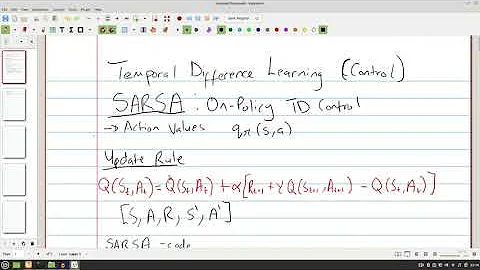 Temporal Difference Learning (Control)
SARSA : On-Policy TD Control
→ Action Values qπ(s,a)
Update Rule
Q(St,At) = Q(St,At) + α[Rt+1 + γQ(St+1,At+1) - Q(St,At)]
[S, A, R, S', A']
SARSA - code